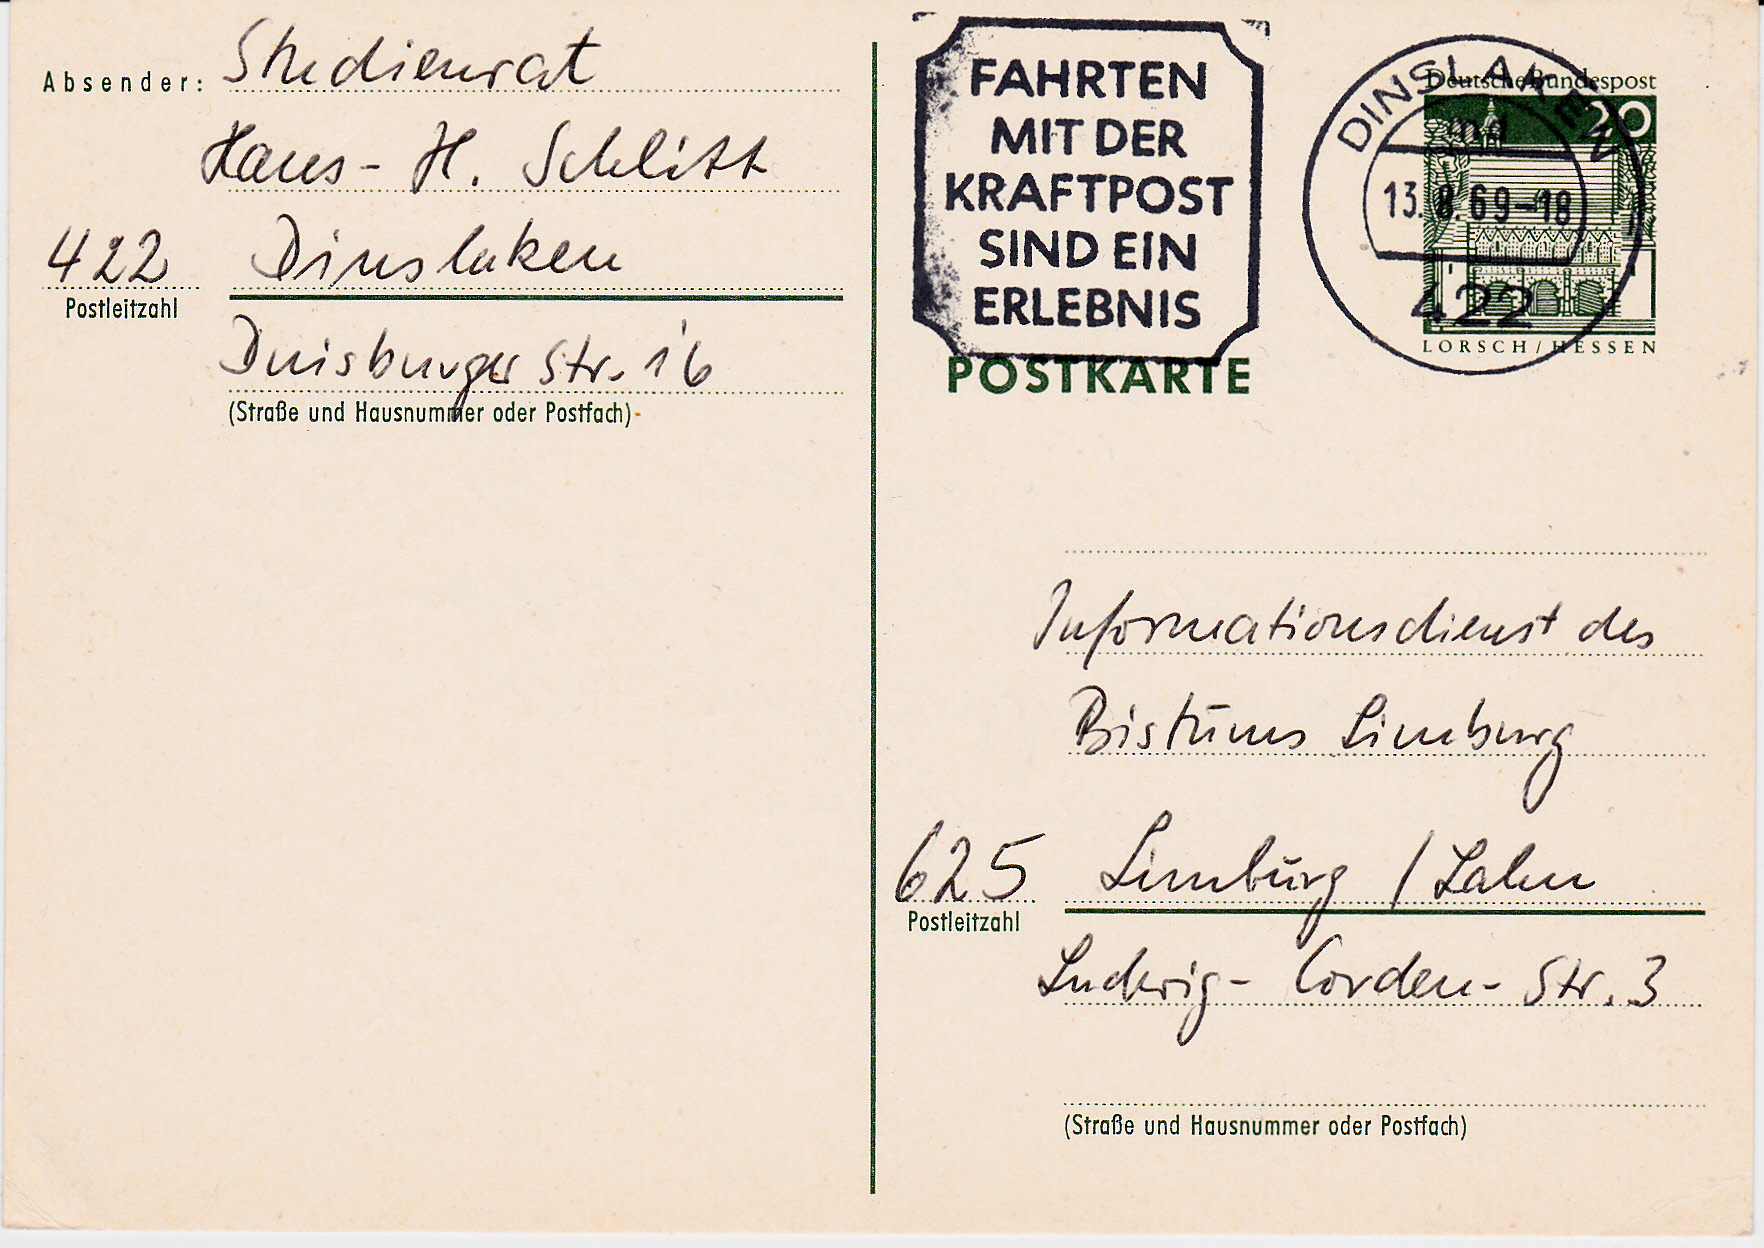 Absender: Studienrat
Hans-H. Schlitt
422 Dinslaken
Postleitzahl
Duisburger Str. 16
(Straße und Hausnummer oder Postfach)
FAHRTEN
MIT DER
KRAFTPOST
SIND EIN
ERLEBNIS
DINSLAKEN 1
13.8.69-18
422
Deutsche Bundespost
20
LORSCH/HESSEN
POSTKARTE
Informationsdienst des
Bistums Limburg
625 Limburg / Lahn
Postleitzahl
Ludwig-Corden-Str. 3
(Straße und Hausnummer oder Postfach)